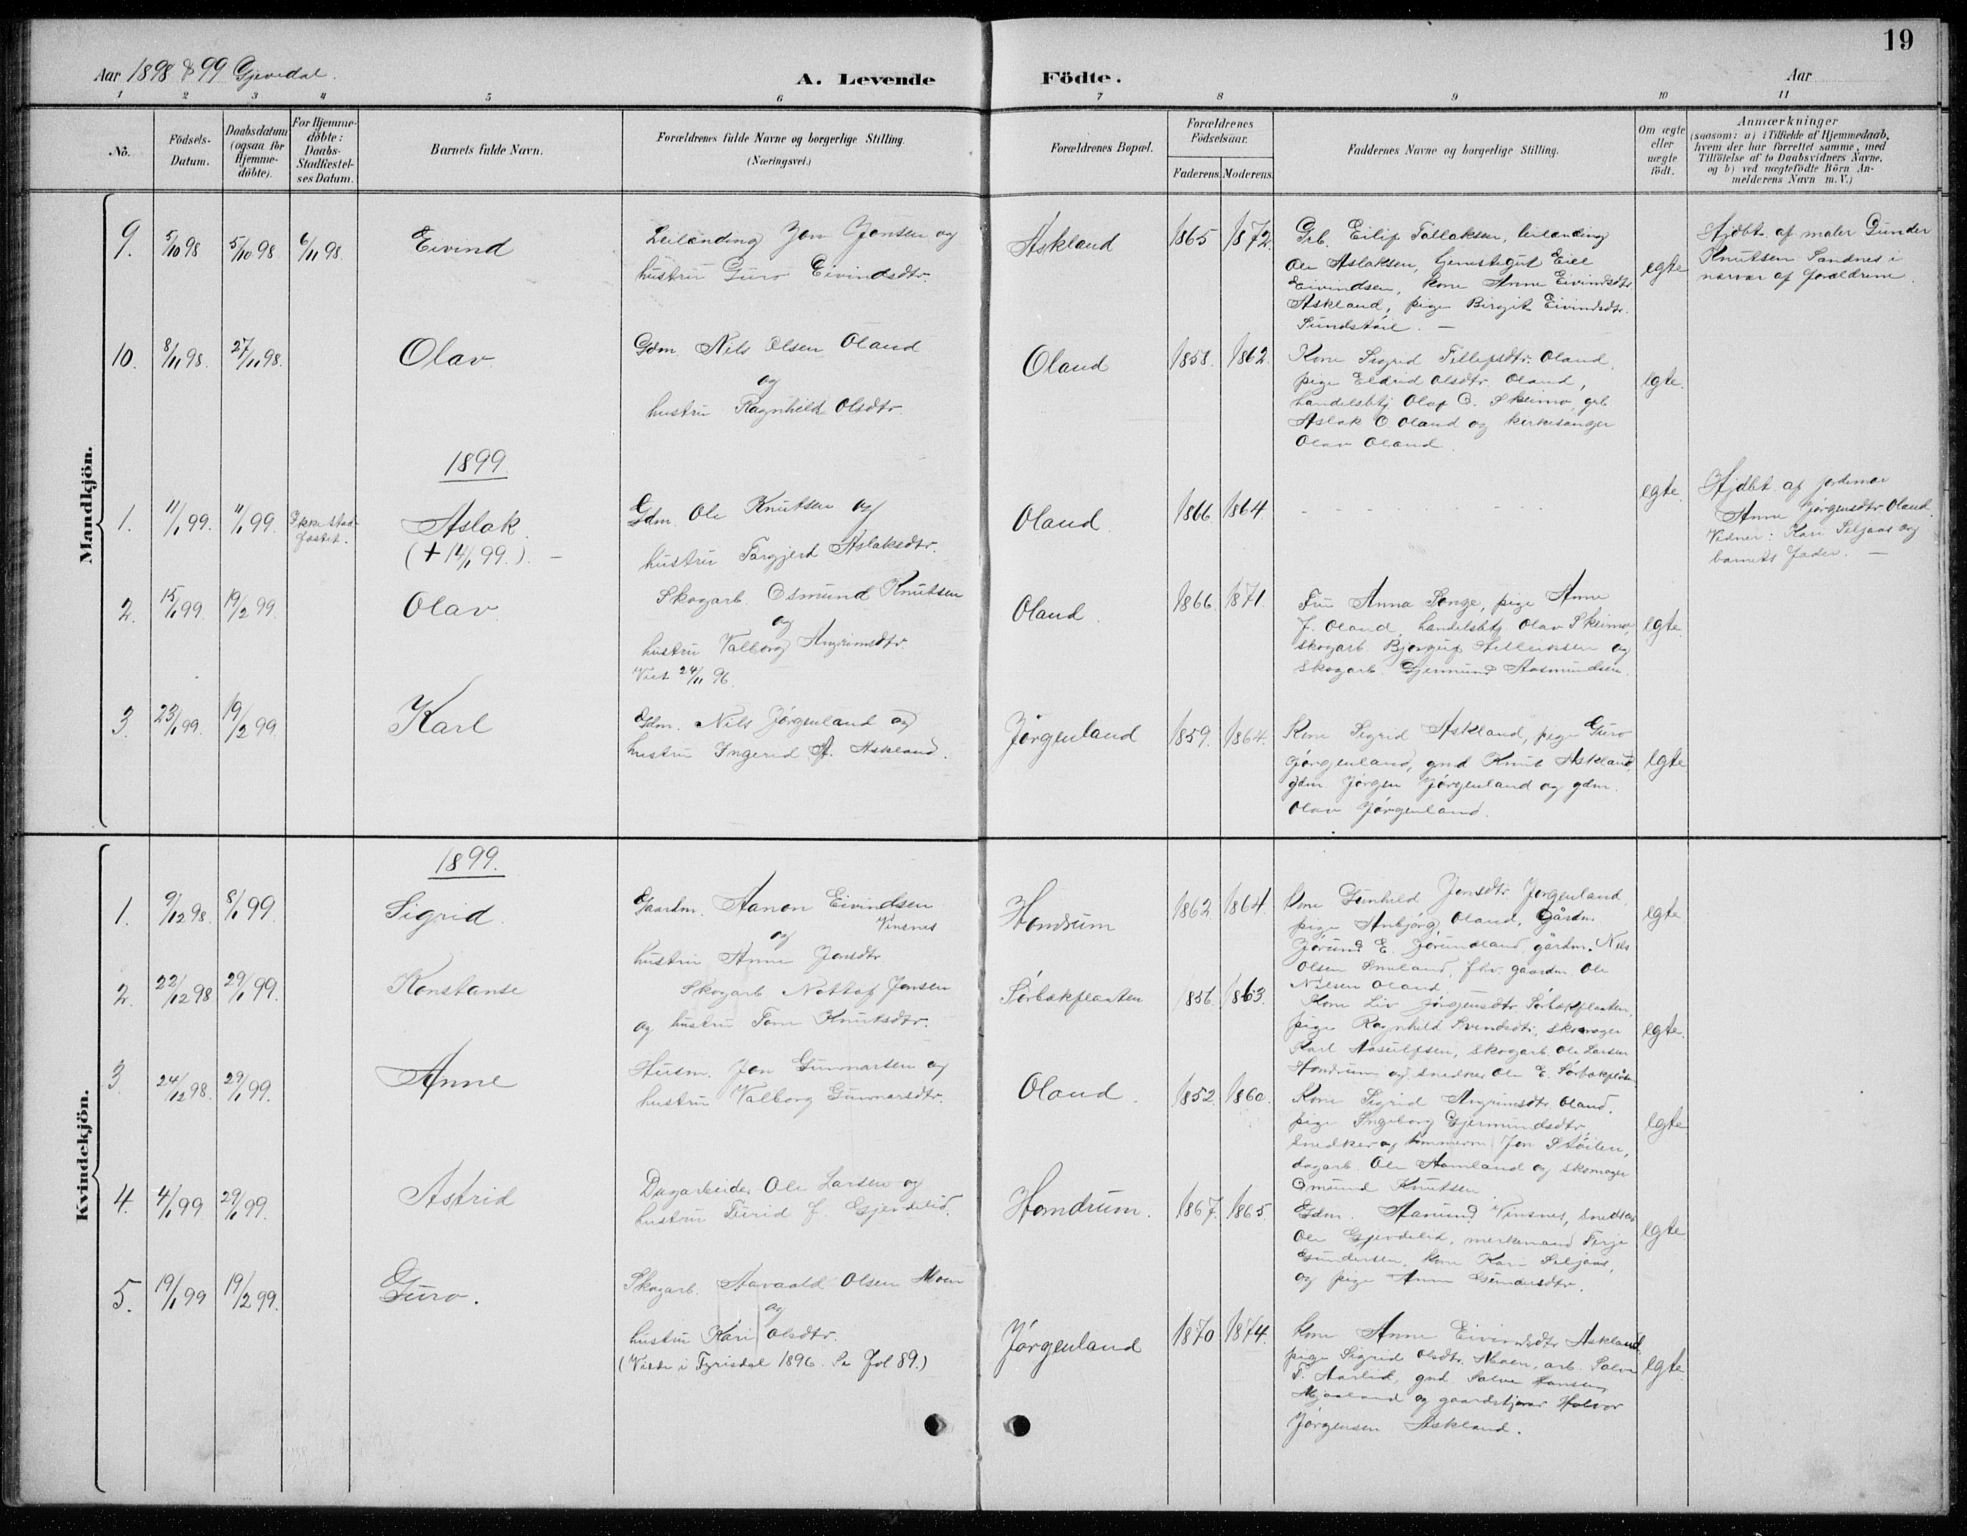 19
Aar 1898 & 99 Gjevedal.
A. Levende Födte.
Aar
1 2 3 4 5 6 7 8 9 10 11
Nô.
Födsels-Datum.
Daabsdatum (ogsaa for Hjemme-döbte).
For Hjemme-döbte: Daabs-Stadfæstel-ses Datum.
Barnets fulde Navn.
Forældrenes fulde Navne og borgerlige Stilling.
(Næringsvei.)
Forældrenes Bopæl.
Forældrenes Födselsaar.
Faderens. Moderens.
Faddernes Navne og borgerlige Stilling.
Om ægte eller uægte födt.
Anmærkninger
(saasom: a) i Tilfælde af Hjemmedaab,
hvem der har forrettet samme, med
Tilföielse af to Daabsvidners Navne,
og b) ved uægtefödte Börn An-
melderens Navn m. V.)
Mandkjön.
9. 5/10 98 5/10 98 6/11 98 Eivind
Leilending Jon Jonsen og
hustru Guro Eivindsdtr.
Askland 1865 1872
Grb. Eilif Tallaksen, leilending
Ole Aslaksen,
Eivindsen, kone Anne Eivindsdtr
Askland, pige Birgit Eivindsdtr.
Sundstøil. —
egte
Hjdbt. af maler Gunder
Knutsen Sandnes i
nærvær af forældrene
10. 8/11 98. 27/11 98. Olav
Gdm. Nils Olsen Oland
og
hustru Ragnhild Olsdtr.
Oland 1858. 1862.
Kone Sigrid Tellefsdtr. Oland,
pige Eldrid Olsdtr. Oland,
handelsbtj Olaf O. Skeimo, grb.
Aslak O Oland og kirkesanger
Olav Oland
egte.
1899.
1. 11/1 99. 11/1 99 Ikke stad-
fæstet.
Aslak.
(+ 14/1 99.). —
Gdm. Ole Knutsen og
hustru Torgjerd Aslaksdtr.
Oland. 1866 1864
egte.
Hjdbt af jordmor
Anne Jørgensdtr Oland.
Vidner: Kari Seljaas og
barnets fader. —
2. 15/1 99. 19/2 99 Olav
Skogarb Osmund Knutsen
og
hustru Valborg Angrimsdtr.
Viet 24/11 96
Oland. 1866 1871.
Fru Anna Songe, pige Anne
J. Oland, handelsbtj. Olav Skeimo,
skogarb. Bjørgulf Tellefsen og
skogarb. Gjermund Aasmundsen.
egte.
3. 23/1 99. 19/2 99 Karl
Gdm. Nils Jørgenland og
hustru Ingerid A. Askland.
Jørgenland 1859. 1864.
Kone Sigrid Askland, pige Guro
Jørgenland, gnd Knut Askland,
gdm Jørgen Jørgenland og gdm.
Olav Jørgenland.
egte
Kvindekjön.
1899.
1. 9/12 98. 8/1 99. Sigrid.
Gaardm. Aanon Eivindsen
Vinsnes
og
hustru Anne Jonsdtr.
Homdrum 1862 1864.
Kone Gunhild Jonsdtr. Jørgenland.
pige Anbjørg Oland, Gårdm.
Jørund E. Jørundland gårdm. Nils
Olsen, fhv. gaardm. Ole
Nilsen Oland
egte
2. 22/12 98 29/1 99. Konstanse
Skogarb Nottof Jensen
og hustru Tone Knutsdtr.
Sørbøkplasten 1856. 1863.
Kone Liv Jørgensdtr Sørbøkplasten,
pige Ragnhild Svendsdtr., skomager
Karl Aasulfsen, skogarb. Ole Larsen
Homdrum og snedker Ole E. Sørbøkplasten
egte.
3 24/12 98. 29/1 99. Anne
Husm. Jon Gunnarsen og
hustru Valborg Gunnarsdtr.
Oland. 1852. 1860.
Kone Sigrid Angrimsdtr Oland.
pige Ingeborg Gjermundsdtr,
snedker og tømmerm Jon Støilen,
dagarb. Ole Aamland og skomager
Osmund Knutsen
egte
4. 4/1 99 29/1 99. Astrid
Dagarbeider Ole Larsen og
hustru Turid J. Gjevdelid.
Homdrum. 1867. 1865.
Gdm. Aanund Vinsnes, snedker
Ole Gjevdelid, merkemand Terje
Gundersen, kone Kari Seljaas,
og pige Anne Gundersdtr.
egte
5. 19/1 99 19/2 99. Guro.
Skogarb. Aavaald Olsen Moen
og
hustru Kari Olsdtr.
(Viede i Fyrisdal 1896. Se fol 89.)
Jørgenland 1870 1874.
Kone Anne Eivindsdtr Askland.
pige Sigrid Olsdtr. Moen, arb. Salve
T. Aarlid, gnd Salve Hansen
Mjaaland og gaardstjener Halvor
Jørgensen Askland.
egte